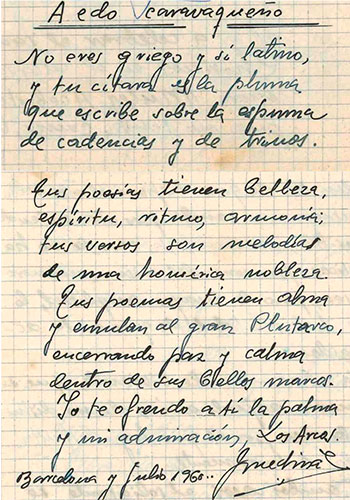 Aedo Caravaqueño
No eres griego y sí latino,
y tu cítara es la pluma
que escribe sobre la espuma
de cadencias y de trinos.
Tus poesías tienen belleza,
espíritu, ritmo, armonía;
tus versos son melodías
de una homérica nobleza.
Tus poemas tienen alma
y emulan al gran Plutarco,
encerrando paz y calma
dentro de sus bellos marcos.
Yo te ofrendo a tí la palma
y mi admiración, Los Arcos.
Barcelona y Julio 1960..